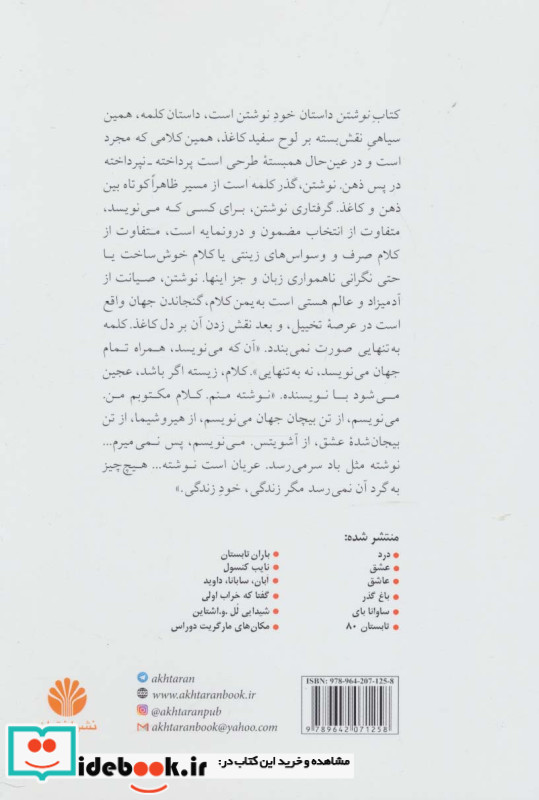 کتابِ نوشتن داستان خودِ نوشتن است، داستان کلمه، همین
سیاهیِ نقش‌بسته بر لوح سفید کاغذ، همین کلامی که مجرد
است و در عین‌حال همبستهٔ طرحی است پرداخته ـ نپرداخته
در پس ذهن. نوشتن، گذر کلمه است از مسیر ظاهراً کوتاه بین
ذهن و کاغذ. گرفتاری نوشتن، برای کسی که می‌نویسد،
متفاوت از انتخاب مضمون و درونمایه است، متفاوت از
کلام صرف و وسواس‌های زینتی یا کلام خوش‌ساخت یا
حتی نگرانی ناهمواری زبان و جز اینها. نوشتن، صیانت از
آدمیزاد و عالم هستی است به‌یمن کلام، گنجاندن جهان واقع
است در عرصهٔ تخییل، و بعد نقش زدن آن بر دل کاغذ. کلمه
به‌تنهایی صورت نمی‌بندد. «آن که می‌نویسد، همراه تمام
جهان می‌نویسد، نه به‌تنهایی». کلام، زیسته اگر باشد، عجین
می‌شود با نویسنده. «نوشته منم. کلام مکتوبم من.
می‌نویسم، از تن بیجان جهان می‌نویسم، از هیروشیما، از تن
بیجان‌شدهٔ عشق، از آشویتس. می‌نویسم، پس نمی‌میرم...
نوشته مثل باد سر می‌رسد. عریان است نوشته... هیچ‌چیز
به گرد آن نمی‌رسد مگر زندگی، خودِ زندگی.»
منتشر شده:
درد
عشق
عاشق
باغ گذر
ساوانا بای
تابستان ۸۰
باران تابستان
نایب کنسول
ابان، سابانا، داوید
گفتا که خراب اولی
شیدایی لُل .و.اشتاین
مکان‌های مارگریت دوراس
akhtaran
www.akhtaranbook.ir
@akhtaranpub
akhtaranbook@yahoo.com
ISBN: 978-964-207-125-8
9 789642 071258
مشاهده و خرید این کتاب در:
idebook.ir